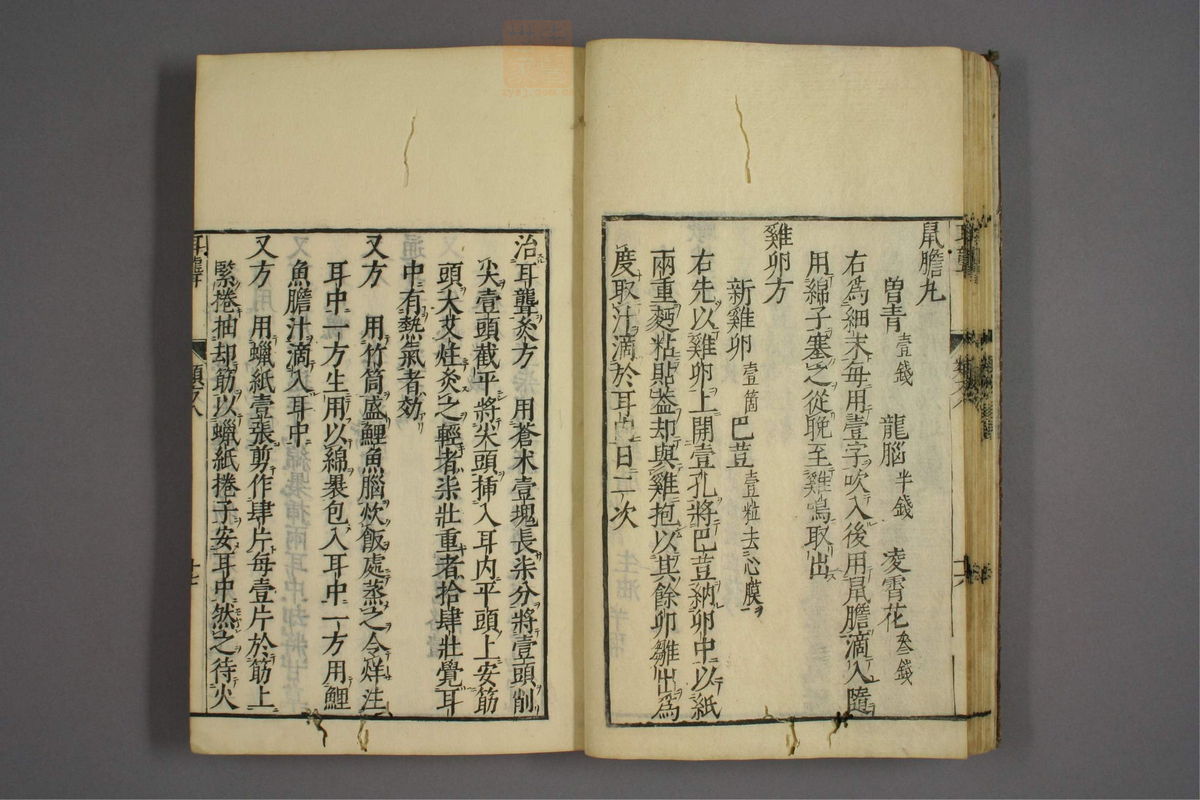 鼠膽丸
曽青 壹錢 龍腦 半錢 凌霄花 叁錢
右爲細末每用壹字吹入後用鼠膽滴入隨
用綿子塞之從晚至雞鳴取出
雞卵方
新雞卵 壹箇 巴荳 壹粒去心膜
右先以雞卵上開壹孔將巴荳納卵中以紙
兩重麪粘貼葢却與雞抱以其餘卵雛出爲
度取汁滴於耳中日二次
治耳聾灸方 用蒼朮壹塊長柒分將壹頭削
尖壹頭截平將尖頭揷入耳内平頭上安筋
頭大艾炷灸之輕者柒壯重者拾肆壯覺耳
中有熱氣者効
又方 用竹筒盛鯉魚腦炊飯處蒸之令烊注
耳中一方生用以綿裹包入耳中一方用鯉
魚膽汁滴入耳中
又方 用蠟紙壹張剪作肆片每壹片於筋上
緊捲抽却筋以蠟紙捲子安耳中然之待火